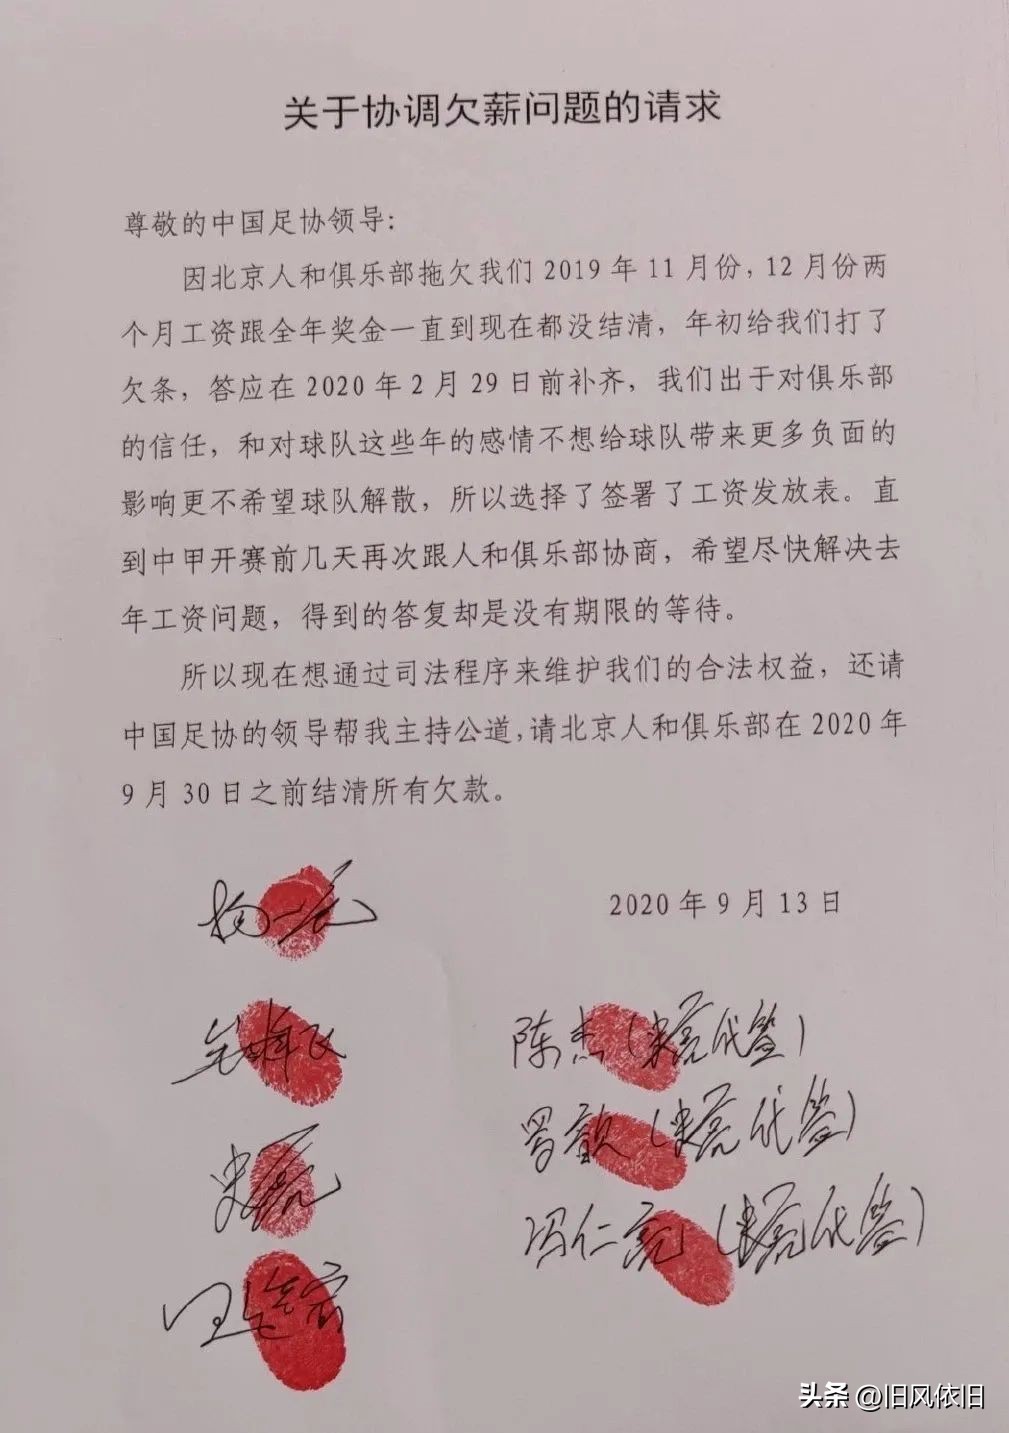 关于协调欠薪问题的请求
尊敬的中国足协领导：
因北京人和俱乐部拖欠我们 2019 年 11 月份，12 月份两
个月工资跟全年奖金一直到现在都没结清，年初给我们打了
欠条，答应在 2020 年 2 月 29 日前补齐，我们出于对俱乐部
的信任，和对球队这些年的感情不想给球队带来更多负面的
影响更不希望球队解散，所以选择了签署了工资发放表。直
到中甲开赛前几天再次跟人和俱乐部协商，希望尽快解决去
年工资问题，得到的答复却是没有期限的等待。
所以现在想通过司法程序来维护我们的合法权益，还请
中国足协的领导帮我主持公道,请北京人和俱乐部在 2020 年
9 月 30 日之前结清所有欠款。
2020 年 9 月 13 日
陈杰（史亮代签）
罗歆（史亮代签）
史亮
冯仁亮（史亮代签）
头条 @旧风依旧